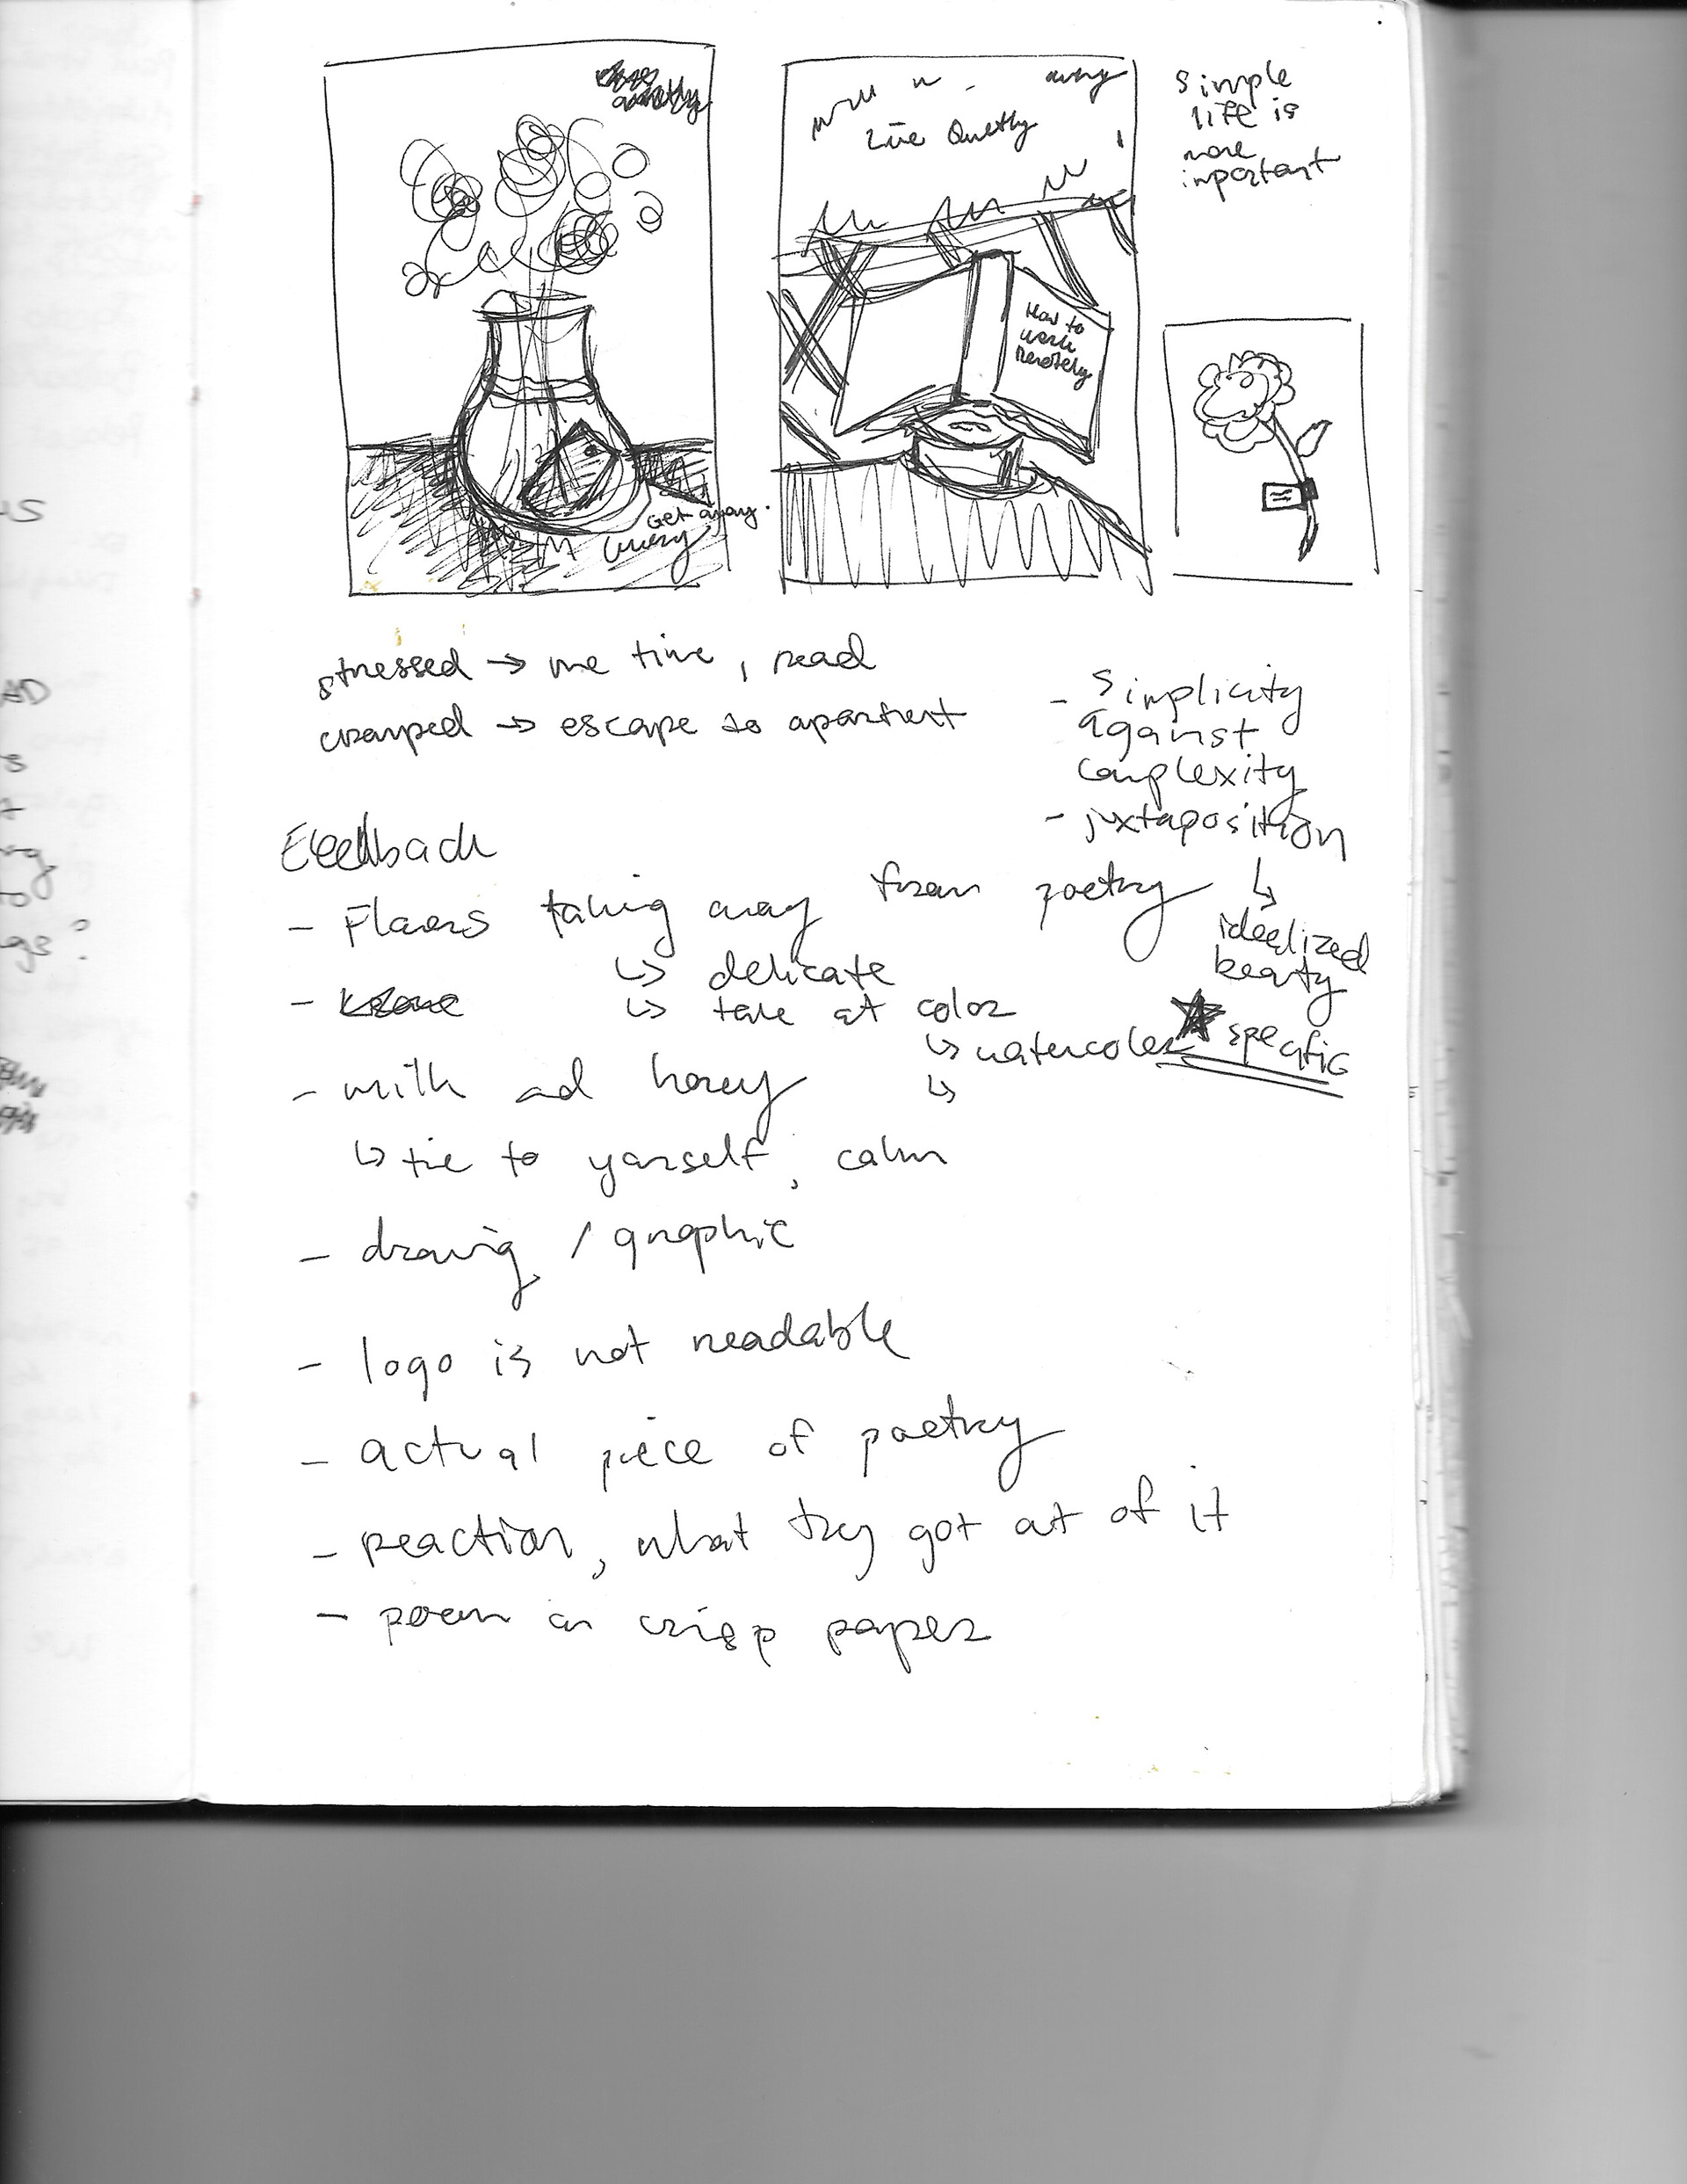 Live Quietly
simple
life is
more
important
How to
work
Remotely
Get away.
stressed → me time, read
cramped → escape to apartment
- simplicity
against
complexity
- juxtaposition
↳
idealized
beauty
★ specific
Feedback
- Flowers taking away from poetry
↳ delicate
↳ take out color
↳ watercolor
- milk and honey
↳
↳ tie to yourself, calm
- drawing / graphic
- logo is not readable
- actual piece of poetry
- reaction, what they got out of it
- poem on crisp paper